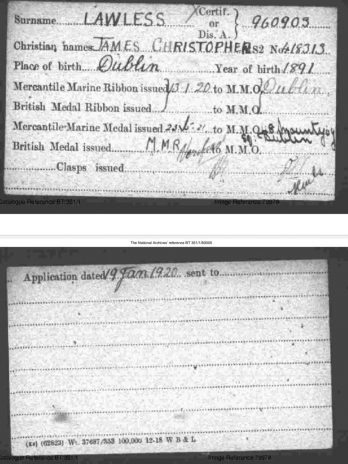 Surname LAWLESS Certif. or Dis. A. } 960903
Christian names JAMES CHRISTOPHER RS2 No 418313
Place of birth Dublin Year of birth 1891
Mercantile Marine Ribbon issued 13 1 20 to M.M.O. Dublin
British Medal Ribbon issued to M.M.O.
Mercantile Marine Medal issued to M.M.O.
British Medal issued M.M.R. M.M.O.
Clasps issued
Catalogue Reference:BT/351/1 Image Reference:
The National Archives' reference BT 351/1/
Application dated 19 Jan 1920 sent to
(62823) Wt. 37687/ 100,000 12-18 W B & L
Catalogue Reference:BT/351/1 Image Reference: